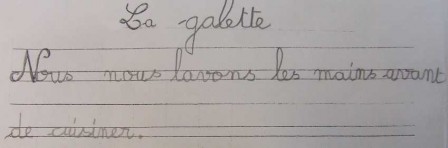 La galette
Nous nous lavons les mains avant
de cuisiner.